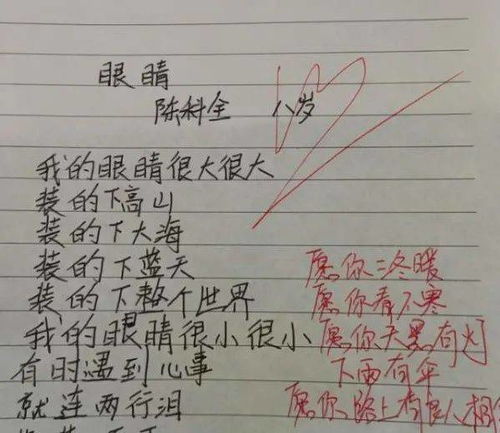 眼睛
陈科全 八岁
我的眼睛很大很大
装的下高山
装的下大海
装的下蓝天
装的下整个世界
我的眼睛很小很小
有时遇到心事
就连两行泪
愿你三冬暖
愿你春不寒
愿你天黑有灯
下雨有伞
愿你路上有良人相